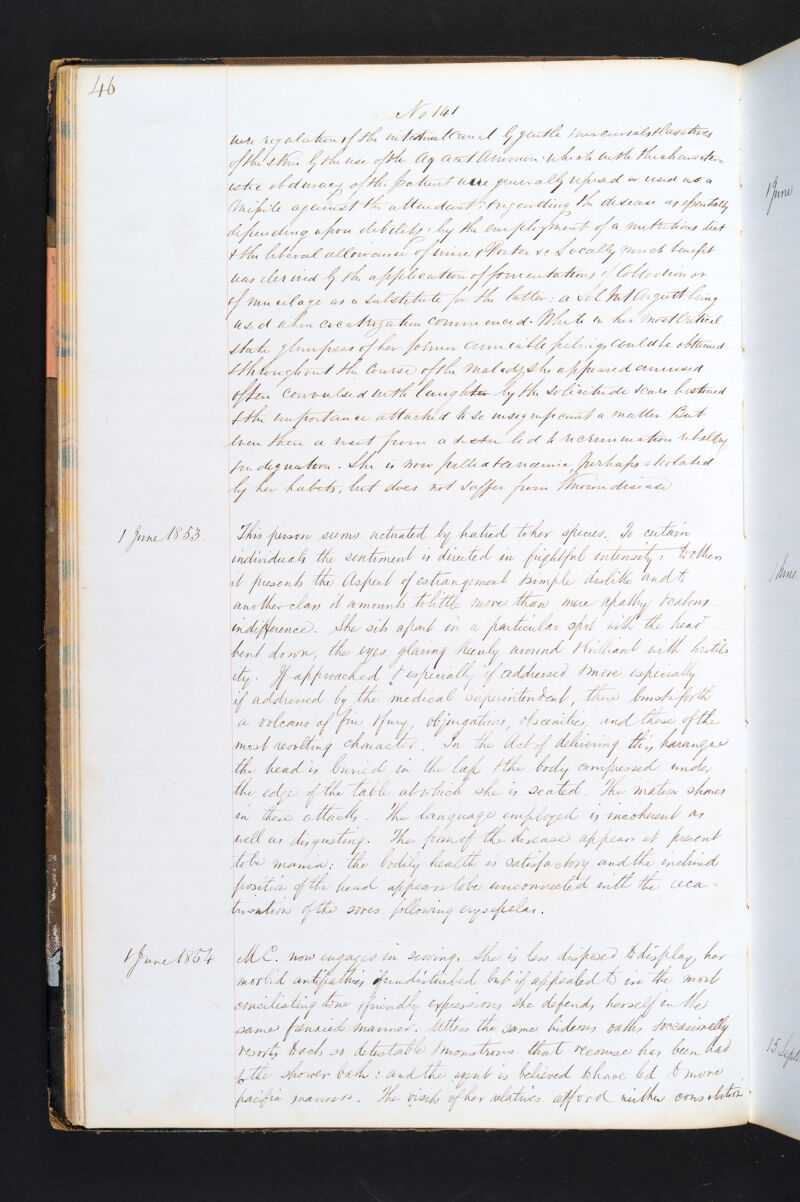 46
No 141
were regulation of the intestinal canal by gentle mercurials & laxatives
of the skin by the use of the Aq acet Ammon: which with the character-
istic obduracy of the patient were generally refused or used as a
missile against the attendant: regarding the disease as essentially
depending upon debility: by the employment of a nutritious diet
& the liberal allowance of wine & Porter &c Locally much benefit
was derived by the application of fomentations of Collodion or
of mucilage as a substitute for the latter: a Sol Nit Argent being
used when cicatrization commenced. While in her most critical
state glimpses of her former amiable feelings could be obtained
& throughout the course of the malady she appeared amused
often convulsed with laughter by the solicitude & care bestowed
& the importance attached to so insignificant a matter But
even then a visit from a sister led to recrimination ribaldry
indignation. She is now pallid & anaemic, perhaps etiolated
by her habits, but does not suffer from known disease
1 June 1853.
This person seems actuated by hatred to her species. To certain
individuals the sentiment is directed in frightful intensity: to others
it presents the aspect of estrangement & simple dislike and to
another class it amounts to little more than mere apathy & callous
indifference. She sits apart in a particular spot with the head
bent down, the eyes glaring keenly around & brilliant with hostil-
ity. If approached & especially if addressed & more especially
if addressed by the medical superintendent, there bursts forth
a volcano of fire & fury, objurgations, obscenities, and these of the
most revolting character. In the act of delivering this harangue
the head is buried in the lap & the body compressed under
the edge of the table at which she is seated. The matron shares
in these attacks. The language employed is incoherent as
well as disgusting. The form of the disease appears at present
to be mania: the bodily health is satisfactory and the inclined
position of the head appears to be unconnected with the cica-
trisation of the sores following erysipelas.
1 June 1854
M.C. now engages in sewing. She is less disposed to display her
morbid antipathies if undisturbed but if appealed to in the most
conciliating tone & friendly expressions she defends herself in the
same frenzied manner. Utters the same hideous oaths & occasionally
resorts to acts so detestable & monstrous that recourse has been had
to the shower bath: and the agent is believed to have led to more
pacific manners. The visits of her relatives afford neither consolation
1 June
1 June
15 Sept